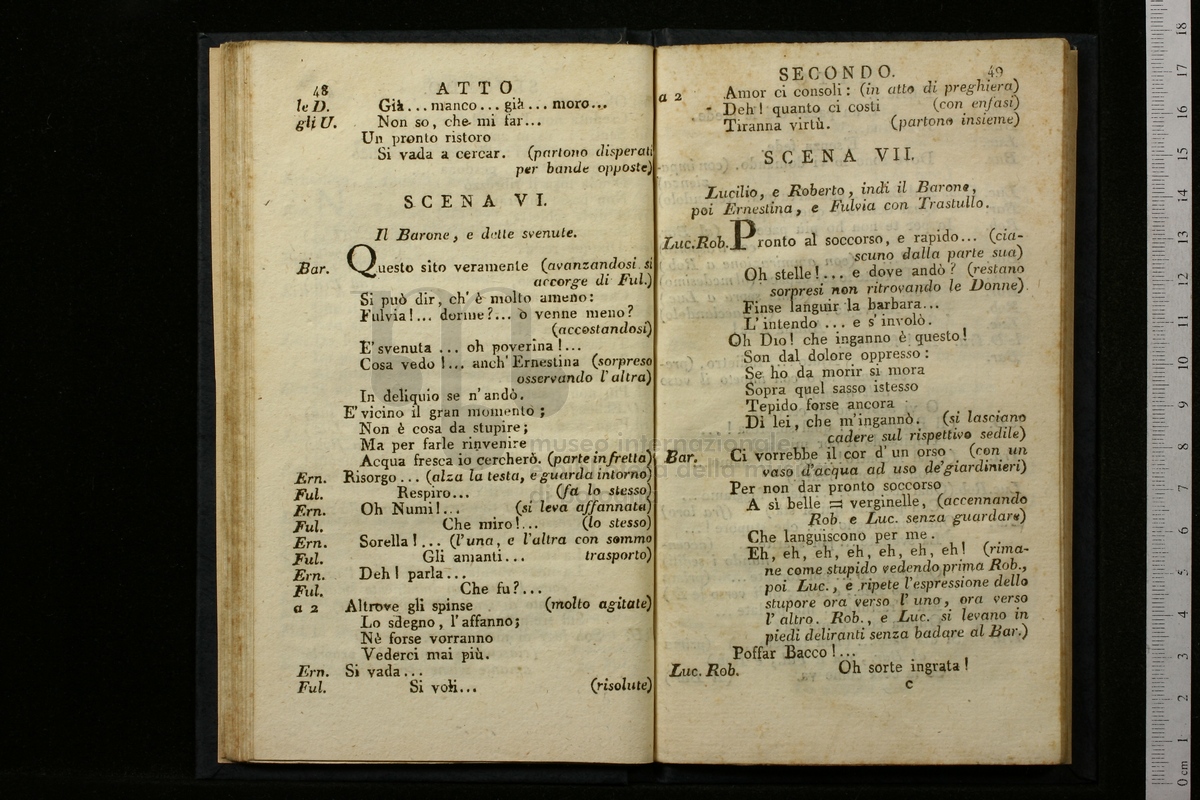 48 ATTO
le D. Già... manco... già... moro...
gli U. Non so, che mi far...
Un pronto ristoro
Si vada a cercar. (partono disperati
per bande opposte)
SCENA VI.
Il Barone, e dette svenute.
Bar. Questo sito veramente (avanzandosi si
accorge di Ful.)
Si può dir, ch' è molto ameno:
Fulvia!... dorme?... o venne meno?
(accostandosi)
E' svenuta... oh poverina!...
Cosa vedo!... anch' Ernestina (sorpreso
osservando l'altra)
In deliquio se n' andò.
E' vicino il gran momento;
Non è cosa da stupire;
Ma per farle rinvenire
Acqua fresca io cercherò. (parte infretta)
Ern. Risorgo... (alza la testa, e guarda intorno)
Ful. Respiro... (fa lo stesso)
Ern. Oh Numi!... (si leva affannata)
Ful. Che miro!... (lo stesso)
Ern. Sorella!... (l'una, e l'altra con sommo
Ful. Gli amanti... trasporto)
Ern. Deh! parla...
Ful. Che fu?...
a 2 Altrove gli spinse (molto agitate)
Lo sdegno, l'affanno;
Nè forse vorranno
Vederci mai più.
Ern. Si vada...
Ful. Si voli... (risolute)
SECONDO. 49
a 2 Amor ci consoli: (in atto di preghiera)
Deh! quanto ci costi (con enfasi)
Tiranna virtù. (partono insieme)
SCENA VII.
Lucilio, e Roberto, indi il Barone,
poi Ernestina, e Fulvia con Trastullo.
Luc. Rob. Pronto al soccorso, e rapido... (cia-
scuno dalla parte sua)
Oh stelle!... e dove andò? (restano
sorpresi non ritrovando le Donne)
Finse languir la barbara...
L' intendo... e s' involò.
Oh Dio! che inganno è questo!
Son dal dolore oppresso:
Se ho da morir si mora
Sopra quel sasso istesso
Tepido forse ancora
Di lei, che m'ingannò. (si lasciano
cadere sul rispettivo sedile)
Bar. Ci vorrebbe il cor d' un orso (con un
vaso d'acqua ad uso de' giardinieri)
Per non dar pronto soccorso
A sì belle = verginelle, (accennando
Rob. e Luc. senza guardare)
Che languiscono per me.
Eh, eh, eh, eh, eh, eh, eh! (rima-
ne come stupido vedendo prima Rob.,
poi Luc., e ripete l'espressione dello
stupore ora verso l' uno, ora verso
l' altro. Rob., e Luc. si levano in
piedi deliranti senza badare al Bar.)
Poffar Bacco!...
Luc. Rob. Oh sorte ingrata!
c
museo internazionale
della musica
di
0 cm 1 2 3 4 5 6 7 8 9 10 11 12 13 14 15 16 17 18